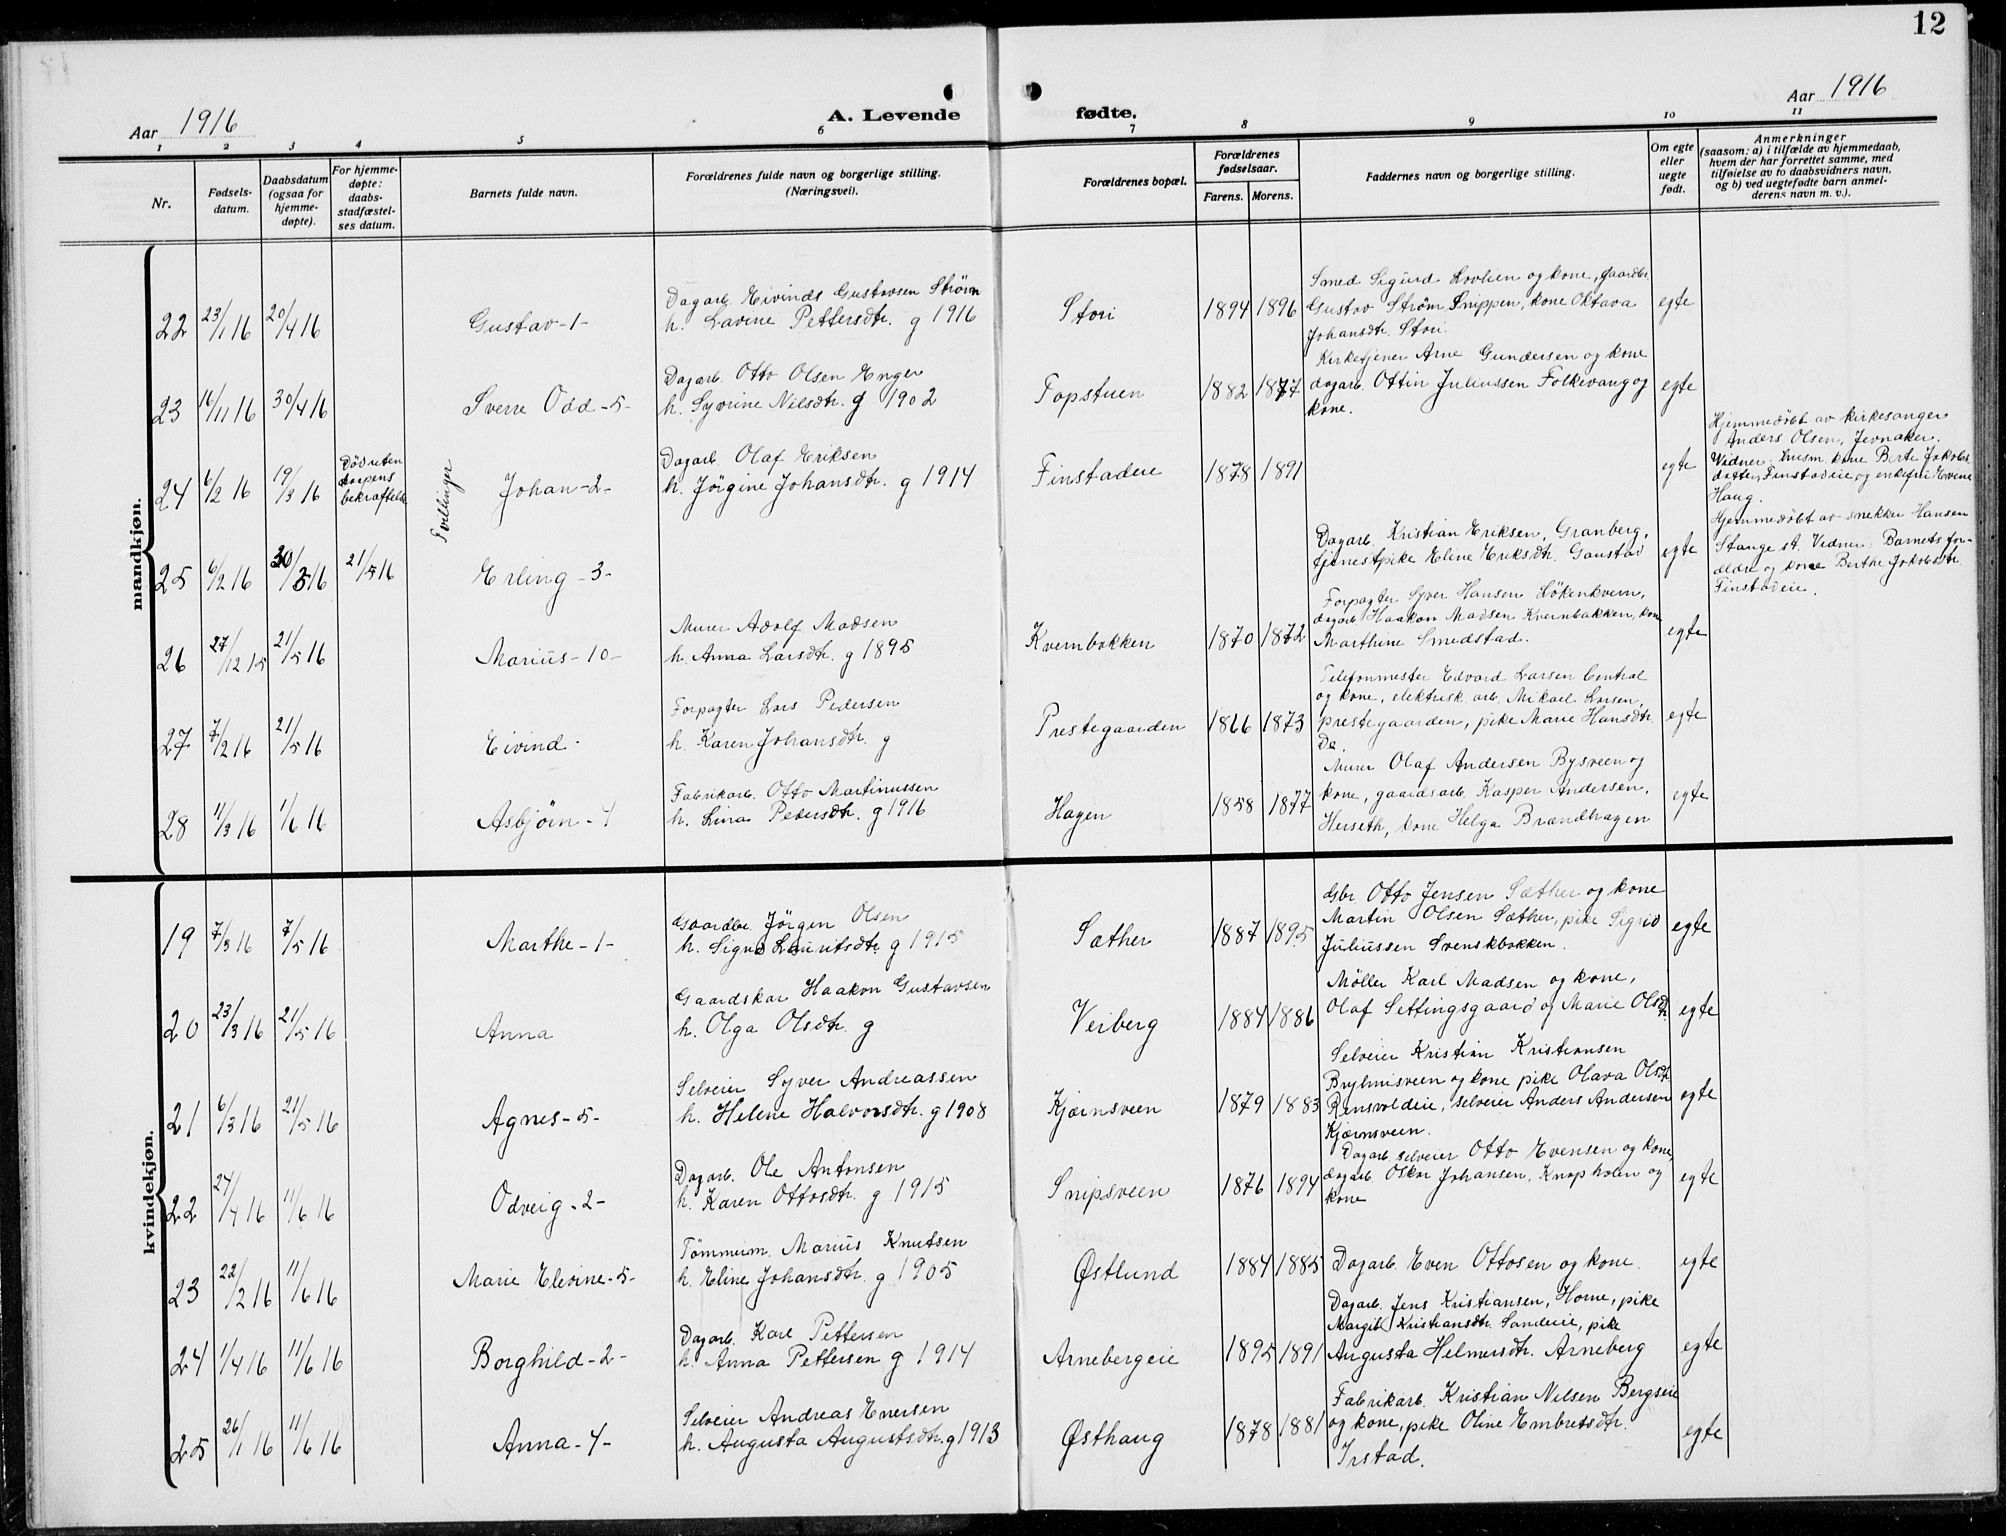 12
Aar 1916
A. Levende fødte.
Aar 1916
1 2 3 4 5 6 7 8 9 10 11
Nr.
Fødsels-
datum.
Daabsdatum
(ogsaa for
hjemme-
døpte).
For hjemme-
døpte:
daabs-
stadfæstel-
ses datum.
Barnets fulde navn.
Forældrenes fulde navn og borgerlige stilling.
(Næringsvei).
Forældrenes bopæl.
Forældrenes
fødselsaar.
Farens. Morens.
Faddernes navn og borgerlige stilling.
Om egte
eller
uegte
født.
Anmerkninger
(saasom: a) i tilfælde av hjemmedaab,
hvem der har forrettet samme, med
tilføielse av to daabsvidners navn,
og b) ved uegtefødte barn anmel-
derens navn m. v.).
mandkjøn.
22 23/1 16 20/4 16 Gustav -1-
Dagarb. Eivinds Gustavsen Strøm
h. Lavine Pettersdtr. g 1916
Stori 1894 1896
Smed Sigurd Lovlien og kone, gaardbr
Gustav Strøm Snippen, kone Oktava
Johansdtr. Stori.
egte
23 16/11 16 30/4 16 Sverre Odd -5-
Dagarb. Otto Olsen Enger
h. Syvrine Nilsdtr. g 1902
Topstuen 1882 1877
Kirketjener Arne Gundersen og kone
dagarb. Ottin Juliussen Folkevang og
kone.
egte
24 6/2 16 19/3 16
Död uten
daapens
bekræftelse
Tvillinger
Johan -2-
Dagarb. Olaf Eriksen
h. Jörgine Johansdtr. g 1914
Finstadeie 1878 1891
egte
Hjemmedöbt av kirkesanger
Anders Olsen, Jevnaker.
Vidner: husm. kone Berte Jakobs
datter, Finstadeie og enkefru Hovine
Haug.
25 6/2 16 30/3 16 21/5 16 Erling -3-
Dagarb. Kristian Eriksen, Granberg,
tjenestpike Eline Eriksdtr. Gaustad
egte
Hjemmedöbt av snekker Hansen
Stange st. Vidner: Barnets for-
ældre og kone Berthe Jokobsdtr.
Finstadeie.
26 27/12 15 21/5 16 Marius -10-
Murer Adolf Madsen
h. Anna Larsdtr. g 1895
Kvernbakken 1870 1872
Forpagter Syver Hansen Hökenkvern,
dagarb. Haakon Madsen Kvernbakken, kone
Marthine Smedstad.
egte
27 7/2 16 21/5 16 Eivind -
Forpagter Lars Pedersen
h. Karen Johansdtr. g
Prestegaarden 1866 1873
Telefonmester Edvard Larsen Central
og kone, elektrisk arb. Mikael Larsen,
prestegaarden, pike Marie Hansdtr.
Do.
egte
28 11/3 16 1/6 16 Asbjørn - 4
Fabrikarb. Otto Martinussen
h. Lina Pedersdtr. g 1916
Hagen 1858 1877
Murer Olaf Andersen Bysveen og
kone, gaardsarb. Kasper Andersen,
Herseth, kone Helga Brændhagen
egte
kvindekjøn.
19 7/3 16 7/5 16 Marthe -1-
Gaardbr. Jörgen Olsen
h. Signe Lauritsdtr. g 1915
Sæther 1887 1895
Gbr. Otto Jensen Sæther og kone
Martin Olsen Sæther, pike Sigrid
Juliussen Svenskbakken.
egte
20 23/3 16 21/5 16 Anna
Gaardskar Haakon Gustavsen
h. Olga Olsdtr. g
Veiberg 1884 1886
Møller Karl Madsen og kone,
Olaf Settingsgaard og Marie Olsdtr.
egte
21 6/3 16 21/5 16 Agnes -5-
Selveier Syver Andreassen
h. Helene Halvorsdtr. g 1908
Kjærnsveen 1879 1883
Selveier Kristian Kristiansen
Brylnisveen og kone pike Olava Olsdtr.
Rensvoldeie, selveier Anders Andersen
Kjærnsveen.
egte
22 24/4 16 11/6 16 Odveig -2-
Dagarb. Ole Antonsen
h. Karen Ottosdtr. g 1915
Snipsveen 1876 1894
Dagarb. selveier Otto Evensen og kone,
dagarb. Oskar Johansen, Knapholen og
kone
egte
23 22/2 16 11/6 16 Marie Elevine -5-
Tömmerm. Marius Knutsen
h. Eline Johansdtr. g 1905
Østlund 1884 1885
Dagarb. Even Ottosen og kone.
egte
24 1/4 16 11/6 16 Borghild -2-
Dagarb. Karl Pettersen
h. Anna Pettersen g 1914
Arnebergeie 1895 1891
Dagarb. Jens Kristiansen, Horne, pike
Margit Kristiansdtr. Sandeie, pike
Augusta Helmersdtr. Arneberg
egte
25 26/1 16 11/6 16 Anna -4-
Selveier Andreas Enersen
h. Augusta Augustsdtr. g 1913
Østhaug 1878 1881
Fabrikarb. Kristian Nilsen Bergseie
og kone, pike Oline Embretsdtr.
Irstad.
egte